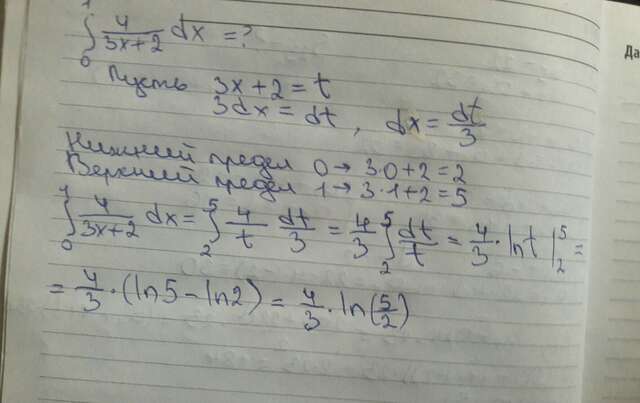 ∫₀¹ 4/(3x+2) dx = ?
Пусть 3x+2 = t
3dx = dt, dx = dt/3
Нижний предел 0 → 3·0+2 = 2
Верхний предел 1 → 3·1+2 = 5
∫₀¹ 4/(3x+2) dx = ∫₂⁵ 4/t dt/3 = 4/3 ∫₂⁵ dt/t = 4/3 · ln t |₂⁵ =
= 4/3 · (ln5 - ln2) = 4/3 · ln(5/2)
Да